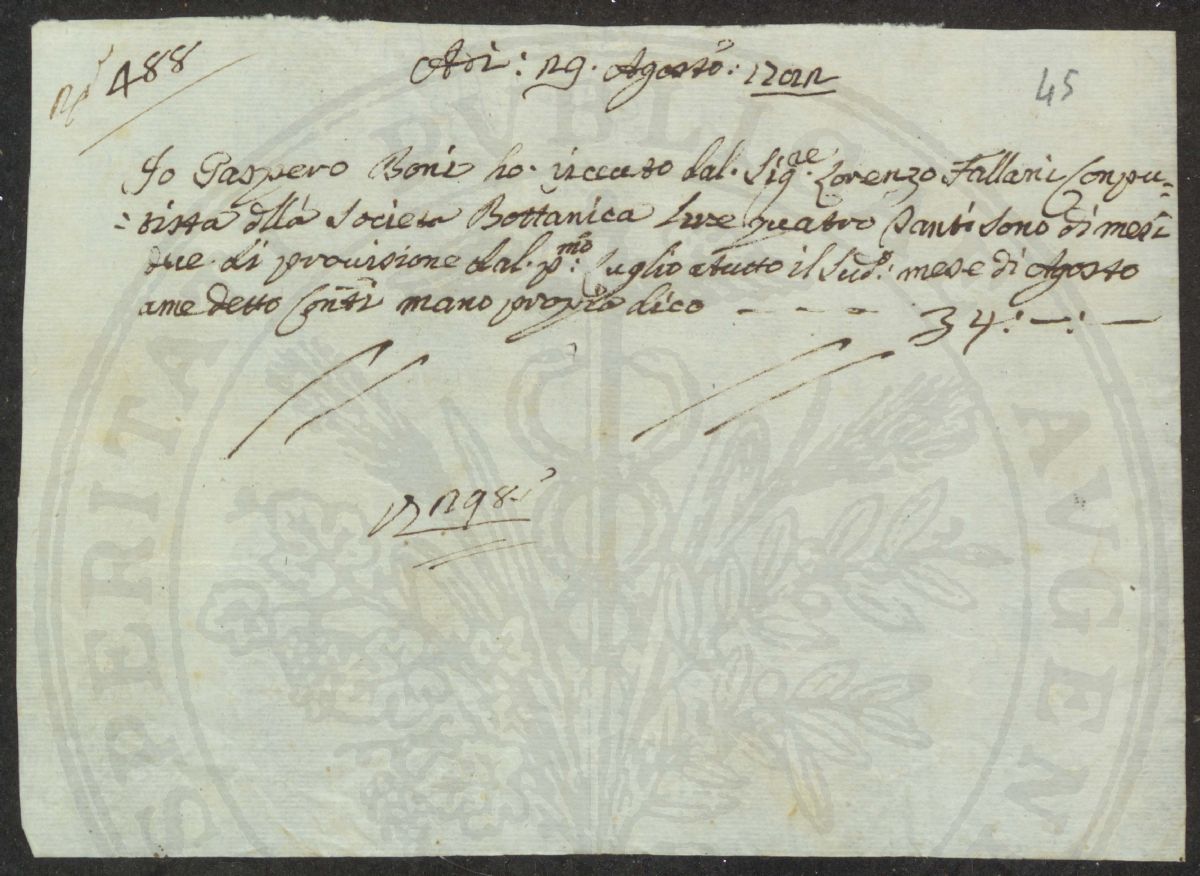 488
Adì: 29. Agosto: 
45
Io Gaspero Boni ho riceuto dal. Sig.re Lorenzo Fallani Conpu=
=tista dlla Societa Bottanica Lire quatro Santi sono di mesi
due di prouisione dal. p.mo Luglio a tutto il Sud.o mese di Agosto
ame detto Conti mano propio dico - - - - 34:—:—
298
PVBLICAE
SPERITA
AVGEN